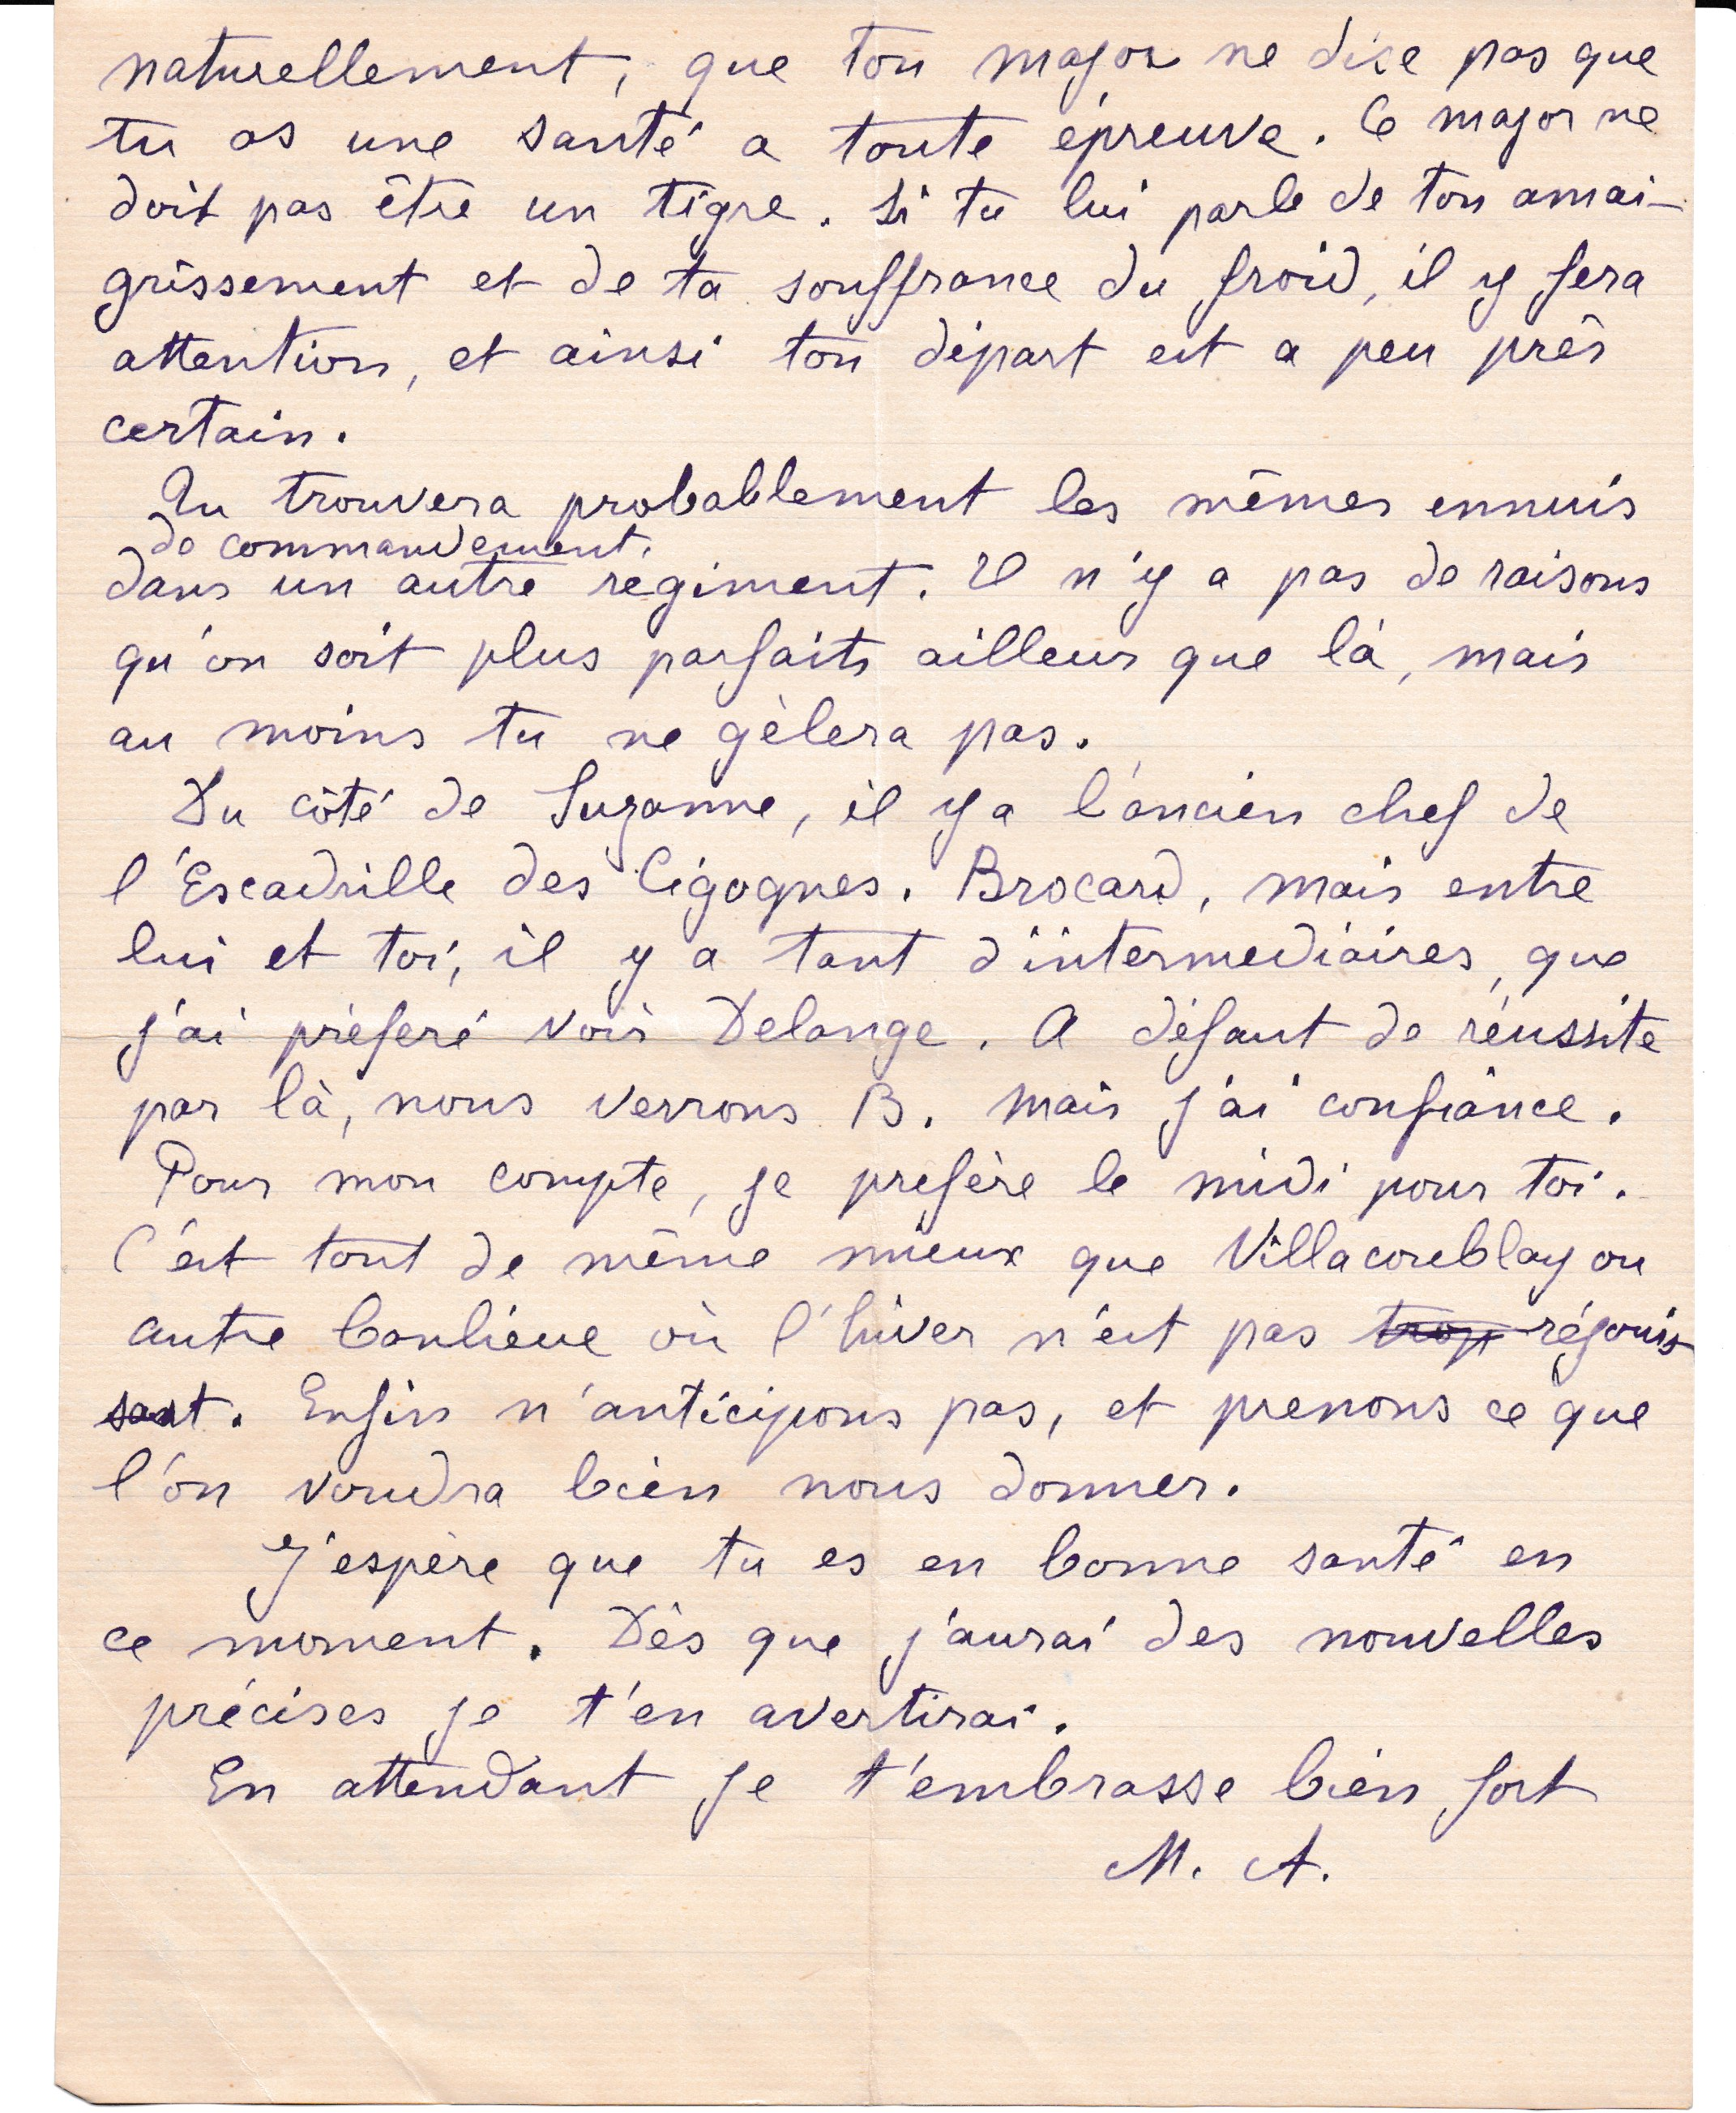 naturellement, que ton major ne dise pas que
tu as une santé a toute épreuve. Ce major ne
doit pas être un tigre. Si tu lui parle de ton amai-
grissement et de ta souffrance du froid, il y fera
attention, et ainsi ton départ est a peu près
certain.
Tu trouvera probablement les mêmes ennuis
de commandement.
dans un autre regiment. Il n'y a pas de raisons
qu'on soit plus parfaits ailleur que là, mais
au moins tu ne gèlera pas.
Du côté de Suzanne, il y a l'ancien chef de
l'Escadrille des Cigognes. Brocard, mais entre
lui et toi, il y a tant d'intermediaires, que
j'ai préferé voir Delange. A défaut de réussite
par là, nous verrons B. Mais j'ai confiance.
Pour mon compte, je prefère le midi pour toi.
C'est tout de même mieux que Villacoublay ou
autre banlieue où l'hiver n'est pas trop réjouis
sant. Enfin n'anticipons pas, et prenons ce que
l'on voudra bien nous donner.
J'espère que tu es en bonne santé en
ce moment. Dès que j'aurai des nouvelles
précises je t'en avertirai.
En attendant je t'embrasse bien fort
M. A.